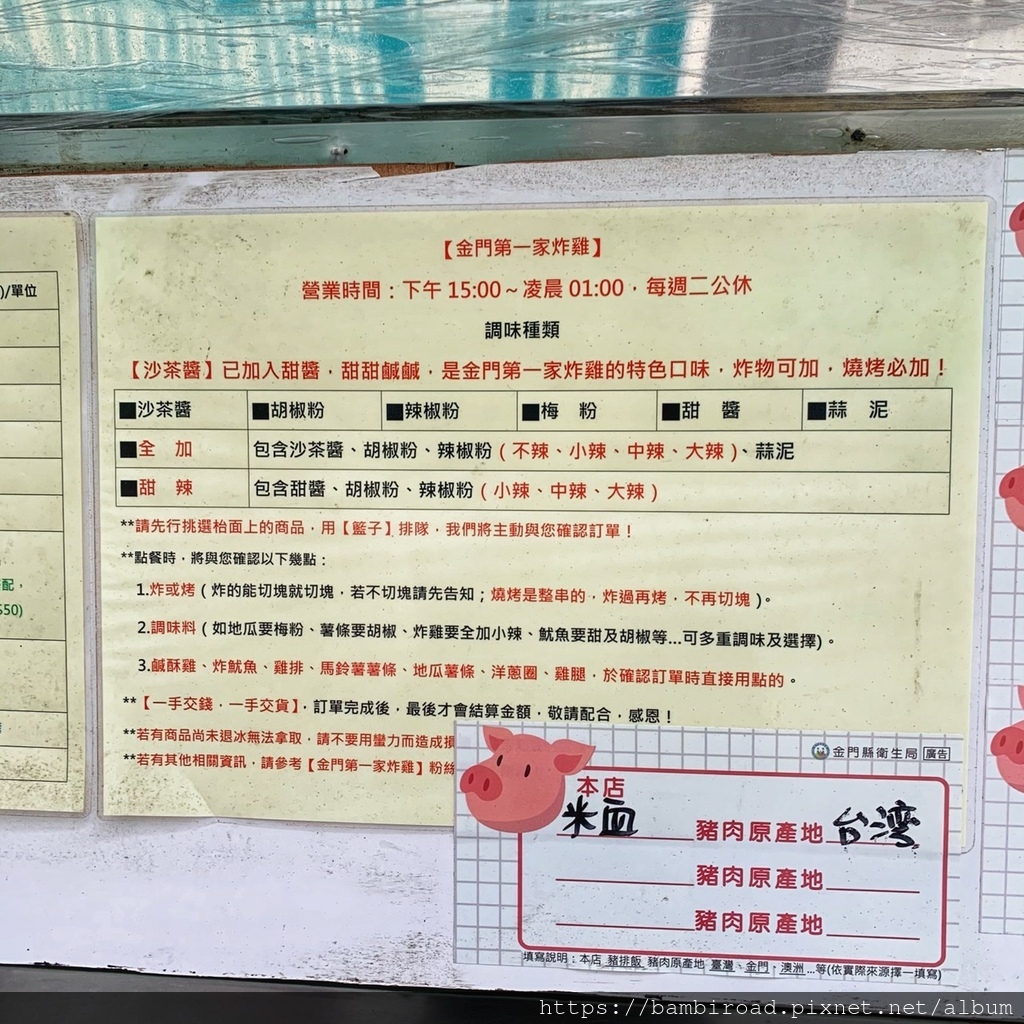 )/單位
配，
$50)
【金門第一家炸雞】
營業時間：下午 15:00～凌晨 01:00，每週二公休
調味種類
【沙茶醬】已加入甜醬，甜甜鹹鹹，是金門第一家炸雞的特色口味，炸物可加，燒烤必加！
■沙茶醬 ■胡椒粉 ■辣椒粉 ■梅 粉 ■甜 醬 ■蒜 泥
■全 加 包含沙茶醬、胡椒粉、辣椒粉（不辣、小辣、中辣、大辣）、蒜泥
■甜 辣 包含甜醬、胡椒粉、辣椒粉（小辣、中辣、大辣）
**請先行挑選枱面上的商品，用【籃子】排隊，我們將主動與您確認訂單！
**點餐時，將與您確認以下幾點：
1.炸或烤（炸的能切塊就切塊，若不切塊請先告知；燒烤是整串的，炸過再烤，不再切塊）。
2.調味料（如地瓜要梅粉、薯條要胡椒、炸雞要全加小辣、魷魚要甜及胡椒等...可多重調味及選擇)。
3.鹹酥雞、炸魷魚、雞排、馬鈴薯薯條、地瓜薯條、洋蔥圈、雞腿，於確認訂單時直接用點的。
**【一手交錢，一手交貨】，訂單完成後，最後才會結算金額，敬請配合，感恩！
**若有商品尚未退冰無法拿取，請不要用蠻力而造成損
**若有其他相關資訊，請參考【金門第一家炸雞】粉絲
金門縣衛生局 廣告
本店
米血 豬肉原產地 台湾
豬肉原產地
豬肉原產地
填寫說明：本店 豬排飯 豬肉原產地 臺灣、金門、澳洲 ...等(依實際來源擇一填寫)
https://bambiroad.pixnet.net/album